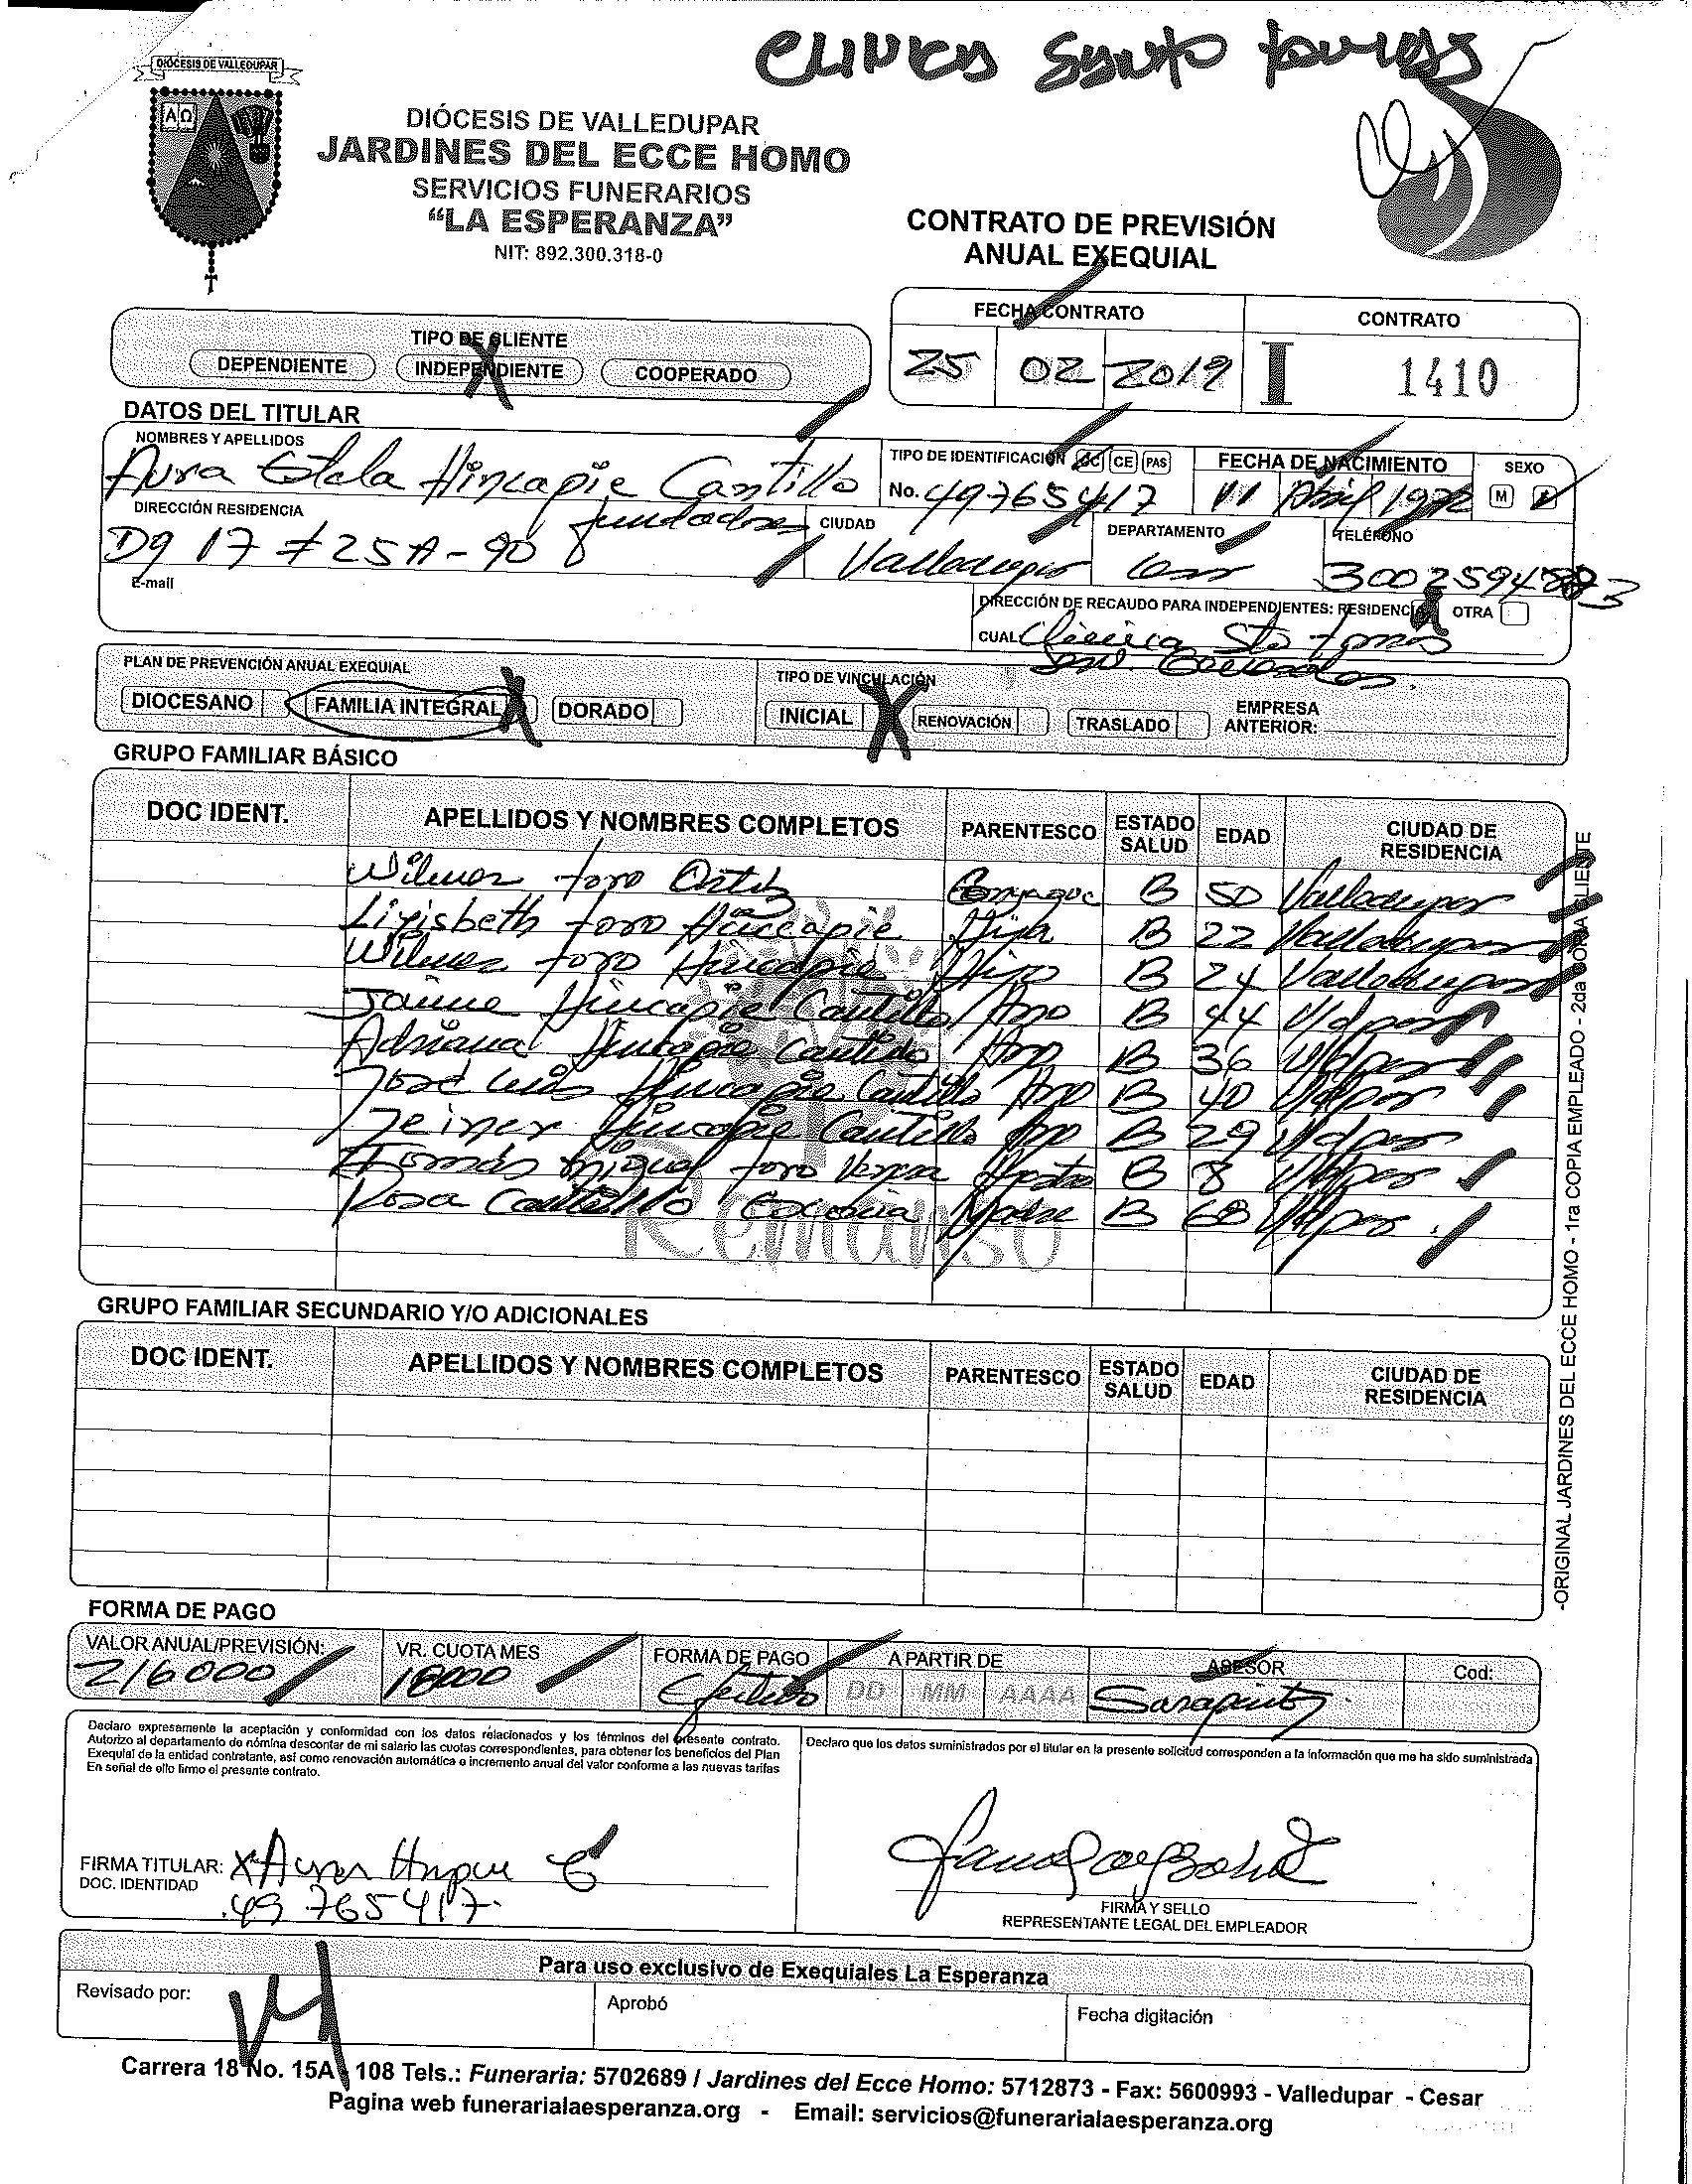 CLINICA SANTO TOMAS
DIÓCESIS DE VALLEDUPAR
AΩ
DIÓCESIS DE VALLEDUPAR
JARDINES DEL ECCE HOMO
SERVICIOS FUNERARIOS
“LA ESPERANZA”
NIT: 892.300.318-0
CONTRATO DE PREVISIÓN
ANUAL EXEQUIAL
FECHA CONTRATO
CONTRATO
25 02 2019
I 1410
TIPO DE CLIENTE
DEPENDIENTE INDEPENDIENTE X COOPERADO
DATOS DEL TITULAR
NOMBRES Y APELLIDOS
Aura Estela Hincapie Cantillo
TIPO DE IDENTIFICACIÓN CC CE PAS
No. 49765417
FECHA DE NACIMIENTO
11 Abril 1972
SEXO
M F
DIRECCIÓN RESIDENCIA
Dg 17 # 25A-90 fundadores
CIUDAD
Valledupar
DEPARTAMENTO
Cesar
TELÉFONO
E-mail
DIRECCIÓN DE RECAUDO PARA INDEPENDIENTES: RESIDENCIA X OTRA
CUAL Clinica Sto tomas
Serv. Generales.
PLAN DE PREVENCIÓN ANUAL EXEQUIAL
DIOCESANO FAMILIA INTEGRAL X DORADO
TIPO DE VINCULACIÓN
INICIAL X RENOVACIÓN TRASLADO
EMPRESA
ANTERIOR:
GRUPO FAMILIAR BÁSICO
DOC IDENT. APELLIDOS Y NOMBRES COMPLETOS PARENTESCO ESTADO SALUD EDAD CIUDAD DE RESIDENCIA
Wilmer toro Ortiz Conyague B 50 Valledupar
Lizisbeth toro Hincapie Hija B 22 Valledupar
Wilmer toro Hincapie Hijo B 24 Valledupar
Jaime Hincapie Cantillo Hno B 44 Vdpar
Adriana Hincapie Cantillo Hna B 36 Vdpar
José Luis Hincapie Cantillo Hno B 40 Vdpar
Jeiner Hincapie Cantillo Hno B 29 Vdpar
Tomás Miguel toro B 8 Vdpar
Rosa Cantillo Madre B 68 Vdpar
Remanso
GRUPO FAMILIAR SECUNDARIO Y/O ADICIONALES
DOC IDENT. APELLIDOS Y NOMBRES COMPLETOS PARENTESCO ESTADO SALUD EDAD CIUDAD DE RESIDENCIA
-ORIGINAL JARDINES DEL ECCE HOMO - 1ra COPIA EMPLEADO - 2da COPIA CLIENTE
FORMA DE PAGO
VALOR ANUAL/PREVISIÓN:
216000
VR. CUOTA MES
18000
FORMA DE PAGO
Efectivo
A PARTIR DE
DD MM AAAA
ASESOR
Cod:
Declaro expresamente la aceptación y conformidad con los datos relacionados y los términos del presente contrato.
Autorizo al departamento de nómina descontar de mi salario las cuotas correspondientes, para obtener los beneficios del Plan
Exequial de la entidad contratante, así como renovación automática e incremento anual del valor conforme a las nuevas tarifas
En señal de ello firmo el presente contrato.
Declaro que los datos suministrados por el titular en la presente solicitud corresponden a la información que me ha sido suministrada
FIRMA TITULAR: X
DOC. IDENTIDAD
49765417
FIRMA Y SELLO
REPRESENTANTE LEGAL DEL EMPLEADOR
Para uso exclusivo de Exequiales La Esperanza
Revisado por:
Aprobó
Fecha digitación
Carrera 18 No. 15A 108 Tels.: Funeraria: 5702689 / Jardines del Ecce Homo: 5712873 - Fax: 5600993 - Valledupar - Cesar
Pagina web funerarialaesperanza.org - Email: servicios@funerarialaesperanza.org